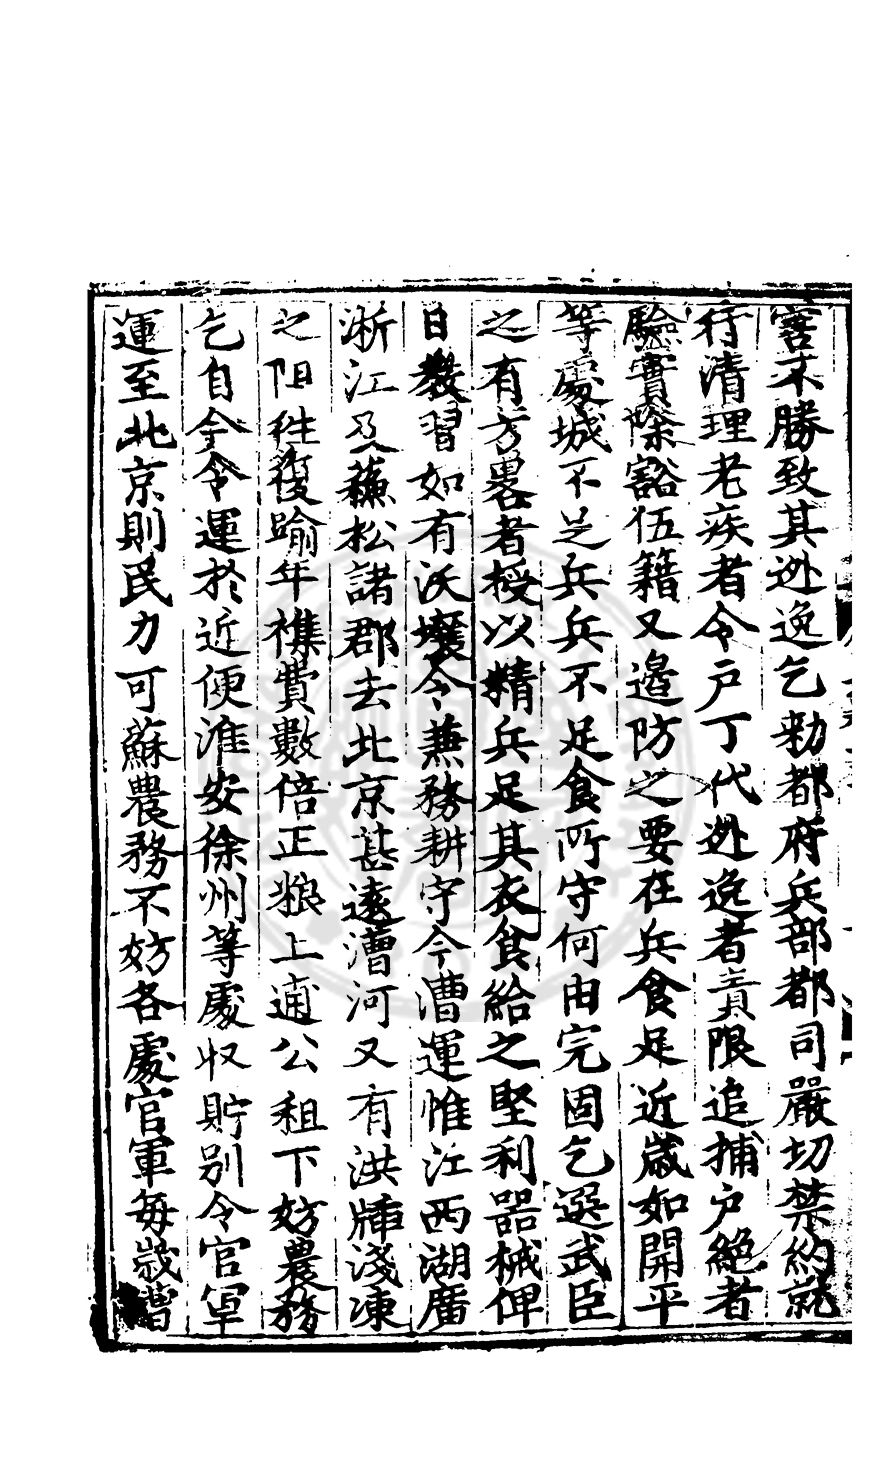 害不勝致其逃逸乞勑都府兵部都司嚴切禁約就
行清理老疾者令户丁代逃逸者責限追捕户絶者
驗實除豁伍籍又邉防之要在兵食足近歲如開平
等處城不足兵兵不足食所守何由完固乞選武臣
之有方畧者授以精兵足其衣食給之堅利器械俾
日教習如有沃壤令兼務耕守今漕運惟江西湖廣
淅江及蘇松諸郡去北京甚遠漕河又有洪牐淺凍
之阻徃復踰年襍費數倍正粮上逋公租下妨農務
乞自今令運於近便淮安徐州等處收貯别令官軍
運至北京則民力可蘇農務不妨各處官軍每歲漕